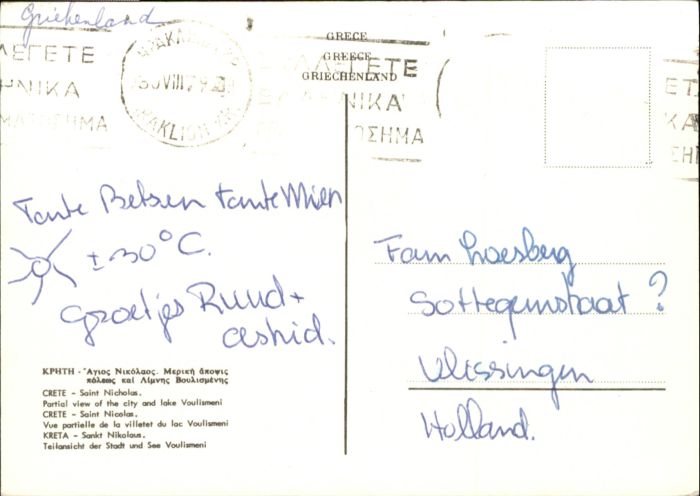 Griekenland
GRECE
GREECE
GRIECHENLAND
ΛΕΓΕΤΕ
ΗΝΙΚΑ
ΜΑΤΟΣΗΜΑ
30 VIII 79
ΛΕΓΕΤΕ
ΝΙΚΑ
ΟΣΗΜΑ
ΕΤ
ΚΑ
ΣΗ
Tante Betsen tante Mien
± 30°C.
Groetjes Ruud +
Astrid.
ΚΡΗΤΗ - Άγιος Νικόλαος. Μερική άποψις
πόλεως καί Λίμνης Βουλισμένης
CRETE - Saint Nicholas.
Partial view of the city and lake Voulismeni
CRETE - Saint Nicolas.
Vue partielle de la villetet du lac Voulismeni
KRETA - Sankt Nikolaus.
Teilansicht der Stadt und See Voulismeni
Fam Loesberg
Sottegemstraat ?
Vlissingen
Holland.